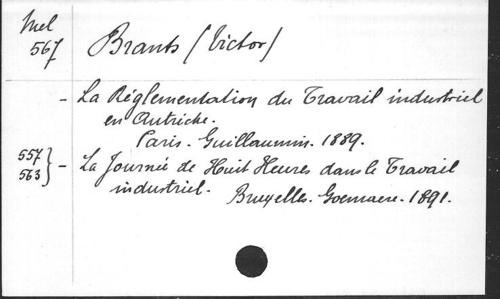 Mel
567
Brants (Victor)
- La Réglementation du Travail industriel
en Autriche.
Paris. Guillaumin. 1889.
557
563 } - La Journée de Huit Heures dans le Travail
industriel. Bruxelles. Goemaere. 1891.